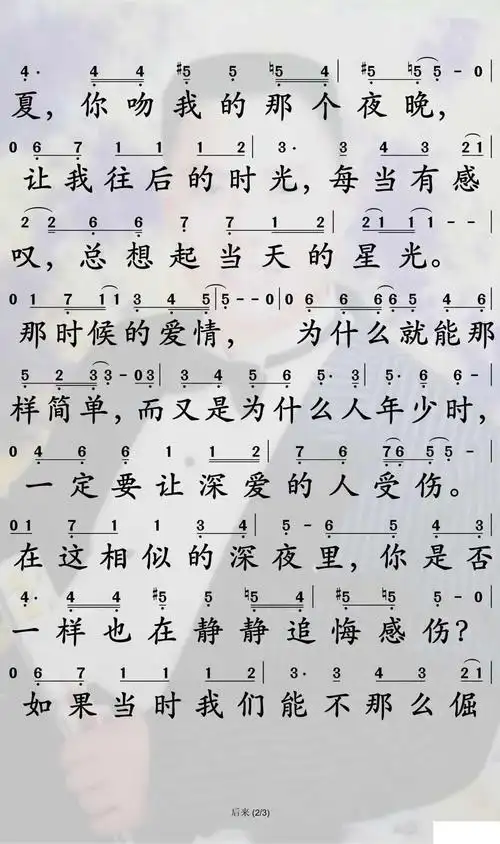 4· 4 4 #5 5 ♮5 4 | #5 ♮5 5 - 0
夏，你吻我的那个夜晚，
0 6 7 1 1 1 2 | 3· 3 4 3 2 1 |
让我往后的时光，每当有感
2 2 6 6 7 7 1 2 | 2 1 1 - - |
叹，总想起当天的星光。
0 1 7 1 1 3 4 5 | 5 - 0 | 0 6 6 6 6 5 4 6 |
那时候的爱情，为什么就能那
5 2 3 3 3 - 0 3 | 3 4 5 6 5· 3 | 5· 6 6 -
样简单，而又是为什么人年少时，
0 4 6 6 1 1 2 | 7 6 7 6 5 5 - |
一定要让深爱的人受伤。
0 1 7 1 1 3 4 | 5 - 6 5 4 3 |
在这相似的深夜里，你是否
4· 4 4 #5 5 ♮5 4 | #5 #5 ♮5 5 - 0 |
一样也在静静追悔感伤？
0 6 7 1 1 1 2 | 3· 3 4 3 2 1 |
如果当时我们能不那么倔
后来 (2/3)